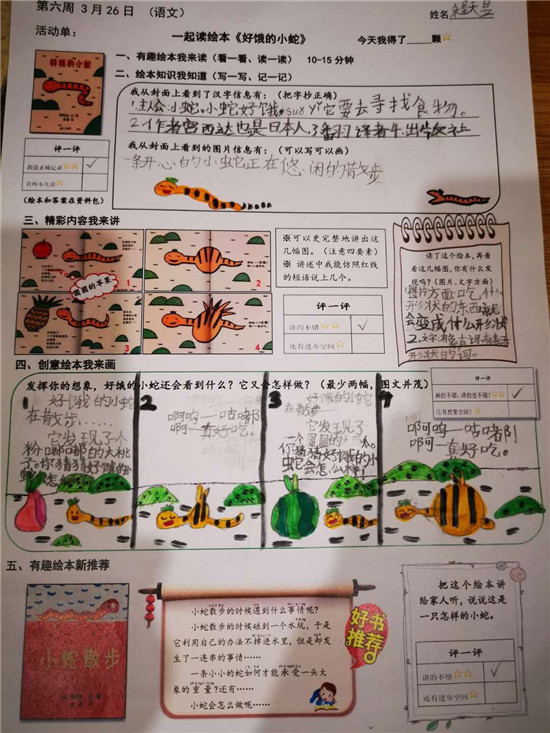 第六周 3月26日 （语文）
姓名
活动单：
一起读绘本《好饿的小蛇》
今天我得了____颗☆
好饿的小蛇
一、有趣绘本我来读（看一看、读一读） 10-15 分钟
二、绘本知识我知道（写一写、记一记）
我从封面上看到了汉字信息有：（把字抄正确）
1.主人公:小蛇。小蛇好饿。suǒ yǐ它要去寻找食物。
2.作者宫西达也是日本人,
我从封面上看到的图片信息有：（可以写可以画）
一条开心的小蛇它正在悠闲的散步
评一评
我能正确记录☆☆
（绘本和答案在资料包）
三、精彩内容我来讲
1
2
圆圆的苹果
3
4
※可以更完整地讲出这几幅图。（注意四要素）
※ 讲述中我能仿照红线的短语说上几个。
评一评
讲的不错☆☆
还有进步空间☆
读了这个绘本,再看
看这几幅图,你有什么发
现吗？(图片、文字方面)
图片方面:吃什么
形状的东西就
会变成什么形状
四、创意绘本我来画
发挥你的想象，好饿的小蛇还会看到什么？它又会怎样做？（最少两幅，图文并茂）
评一评
画的不错，讲的也不错！☆☆
还有想象空间！☆
1 好饿的小蛇
在散步……
它发现了个
粉嘟嘟的大桃
子。你猜猜好饿的小
2
啊呜—咕嘟
啊—真好吃。
3 好饿的小蛇
在散步……
它发现了
你猜猜好饿的小
蛇它会怎么样
4
啊呜—咕嘟
啊—真好吃。
五、有趣绘本新推荐
小蛇散步
小蛇散步的时候遇到什么事情呢？
小蛇散步的时候碰到一个水坑，于是
它利用自己的办法不掉进水里，但是却发
生了一连串的事情……
一条小小的蛇如何才能承受一头大
象的重量？还有……
小蛇会怎么做呢……
好书
推荐
把这个绘本讲
给家人听，说说这是
一只怎样的小蛇。
评一评
讲的不错☆☆
还有进步空间☆